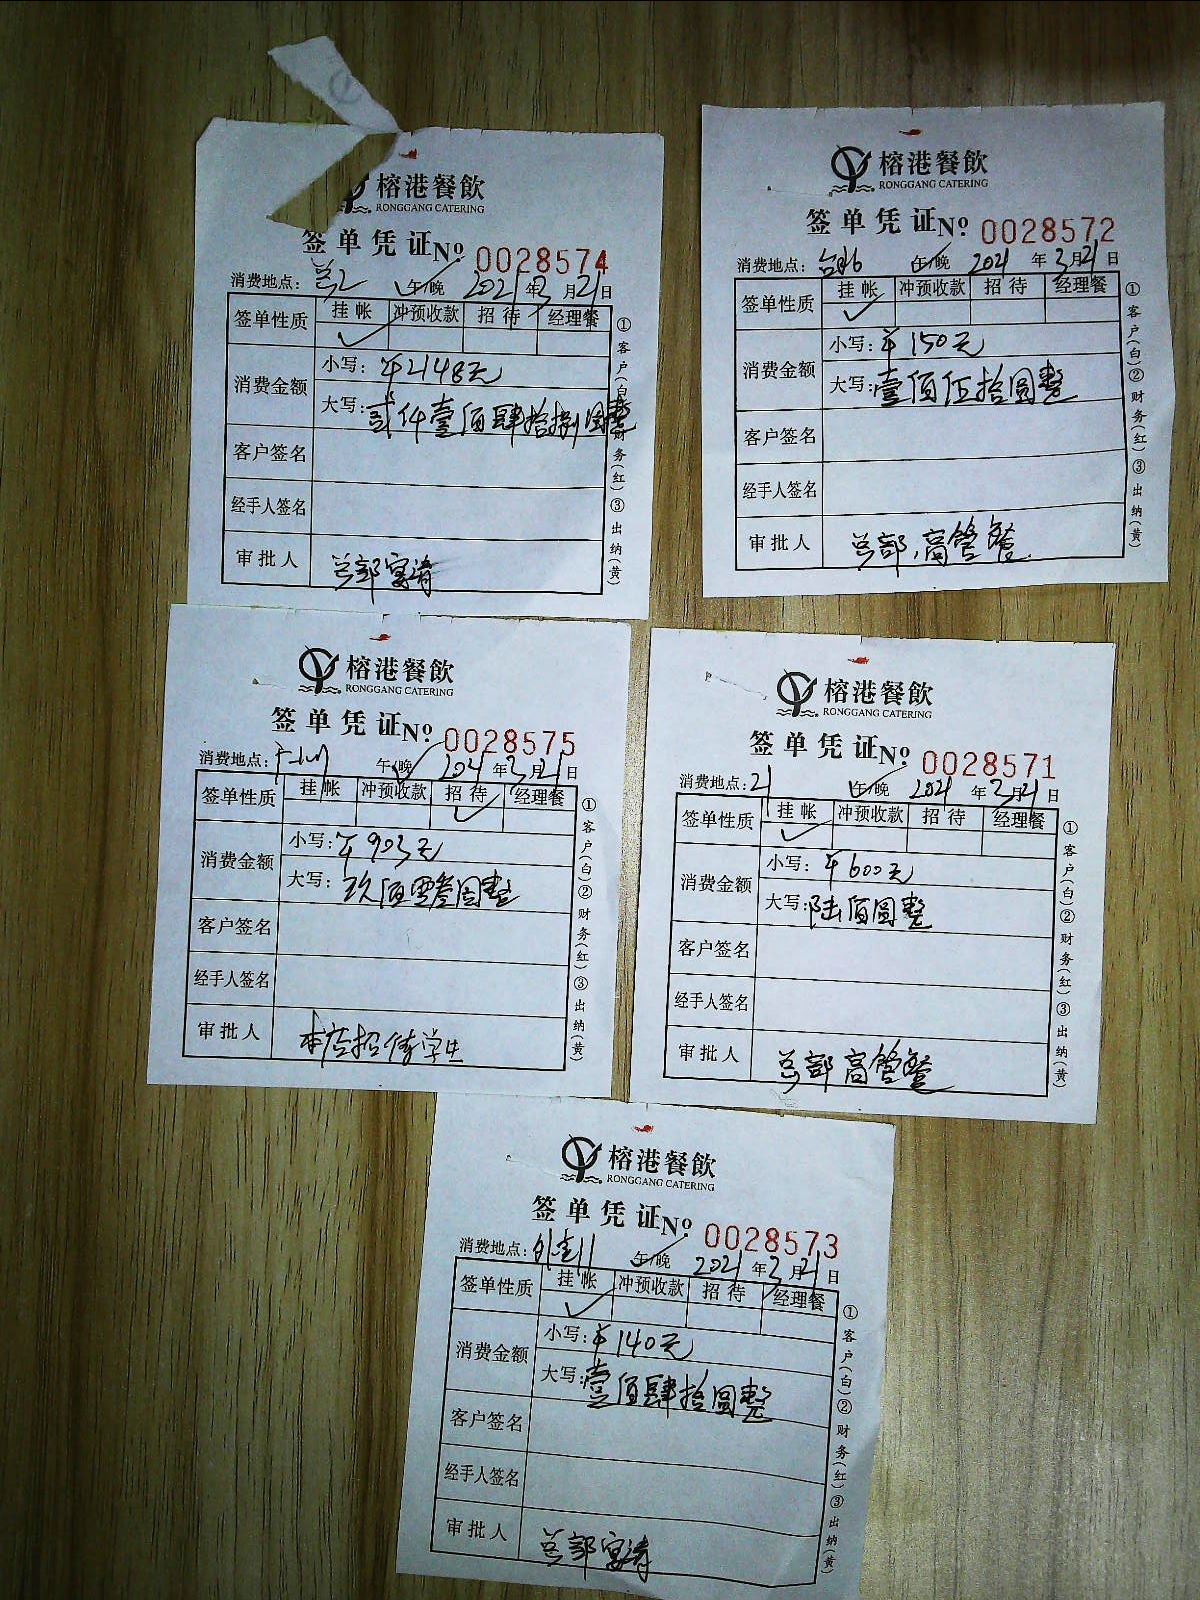 榕港餐飲
RONGGANG CATERING
签单凭证 No 0028574
消费地点: 午/晚 2021年3月21日
签单性质 挂帐 冲预收款 招待 经理餐
消费金额
小写: ¥2148元
大写: 贰仟壹佰肆拾捌圆整
客户签名
经手人签名
审批人 总部宴请
①客户(白)②财务(红)③出纳(黄)
榕港餐飲
RONGGANG CATERING
签单凭证 No 0028572
消费地点: 午/晚 2021年3月21日
签单性质 挂帐 冲预收款 招待 经理餐
消费金额
小写: ¥150元
大写: 壹佰伍拾圆整
客户签名
经手人签名
审批人 总部高管餐
①客户(白)②财务(红)③出纳(黄)
榕港餐飲
RONGGANG CATERING
签单凭证 No 0028575
消费地点: 午/晚 2021年3月21日
签单性质 挂帐 冲预收款 招待 经理餐
消费金额
小写: ¥903元
大写: 玖佰零叁圆整
客户签名
经手人签名
审批人 本店招待学生
①客户(白)②财务(红)③出纳(黄)
榕港餐飲
RONGGANG CATERING
签单凭证 No 0028571
消费地点: 21 午/晚 2021年3月21日
签单性质 挂帐 冲预收款 招待 经理餐
消费金额
小写: ¥600元
大写: 陆佰圆整
客户签名
经手人签名
审批人 总部高管餐
①客户(白)②财务(红)③出纳(黄)
榕港餐飲
RONGGANG CATERING
签单凭证 No 0028573
消费地点: 午/晚 2021年3月21日
签单性质 挂帐 冲预收款 招待 经理餐
消费金额
小写: ¥140元
大写: 壹佰肆拾圆整
客户签名
经手人签名
审批人 总部宴请
①客户(白)②财务(红)③出纳(黄)